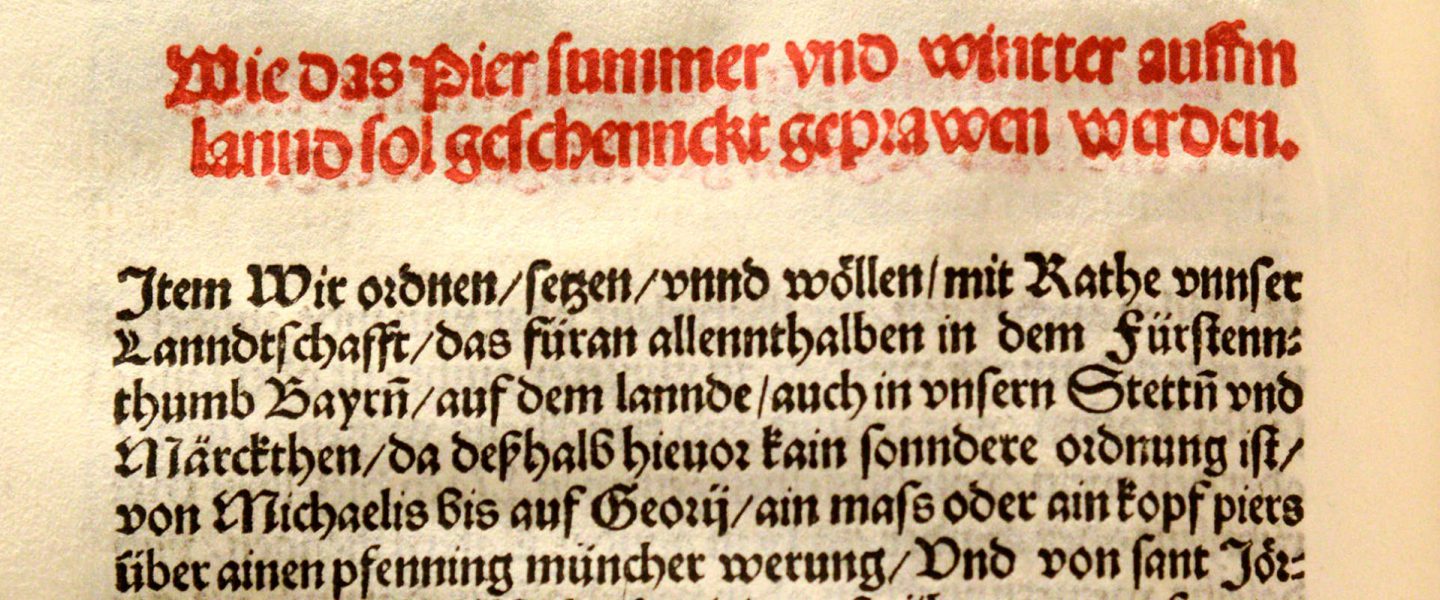 Wie das Pier summer vnd wintter auffm
lannd sol geschennckt geprawen werden.
Item Wir ordnen/setzen/vnnd wöllen/mit Rathe vnnser
Lanndtschafft/das füran allennthalben in dem Fürstenn⸗
thumb Bayrn̄/auf dem lannde/auch in vnsern Stettn̄ vnd
Märckthen/da deßhalb hieuor kain sonndere ordnung ist/
von Michaelis bis auf Georij/ain mass oder ain kopf piers
über ainen pfenning müncher werung/Vnd von sant Jör⸗